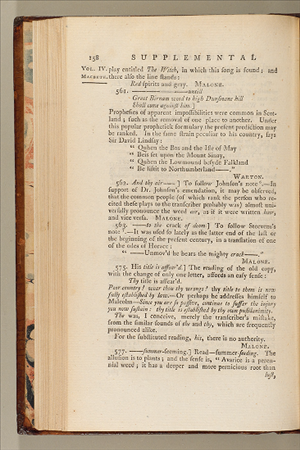 158 SUPPLEMENTAL
VOL. IV.
MACBETH.
play entitled The Witch, in which this song is found; and
there also the line stands:
Red spirits and gray. MALONE.
562. ——until
Great Birnam wood to high Dunsinane hill
Shall come against him.]
Prophesies of apparent impossibilities were common in Scot-
land; such as the removal of one place to another. Under
this popular prophetick formulary the present prediction may
be ranked. In the same strain peculiar to his country, says
Sir David Lindsay:
" Quhen the Bas and the Isle of May
" Beis set upon the Mount Sinay,
" Quhen the Lowmound besyde Falkland
" Be liftit to Northumberland——."
WARTON.
562. And thy air——] To follow Johnson's note.—In
support of Dr. Johnson's emendation, it may be observed,
that the common people (of which rank the person who re-
cited these plays to the transcriber probably was) almost uni-
versally pronounce the word air, as if it were written hair,
and vice versa. MALONE.
563. ——to the crack of doom] To follow Steevens's
note.—It was used so lately as the latter end of the last or
the beginning of the present century, in a translation of one
of the odes of Horace:
" ——Unmov'd he hears the mighty crack——."
MALONE.
575. His title is affear'd.] The reading of the old copy,
with the change of only one letter, affords an easy sense:
Thy title is affear'd.
Poor country! wear thou thy wrongs! thy title to them is now
fully established by law.—Or perhaps he addresses himself to
Malcolm—Since you are so passive, continue to suffer the injury
you now sustain: thy title is established by thy own pusillanimity.
The was, I conceive, merely the transcriber's mistake,
from the similar sounds of the and thy, which are frequently
pronounced alike.
For the substituted reading, his, there is no authority.
MALONE.
577. ——summer-seeming.] Read—summer-seeding. The
allusion is to plants; and the sense is, " Avarice is a peren-
nial weed; it has a deeper and more pernicious root than
lust,